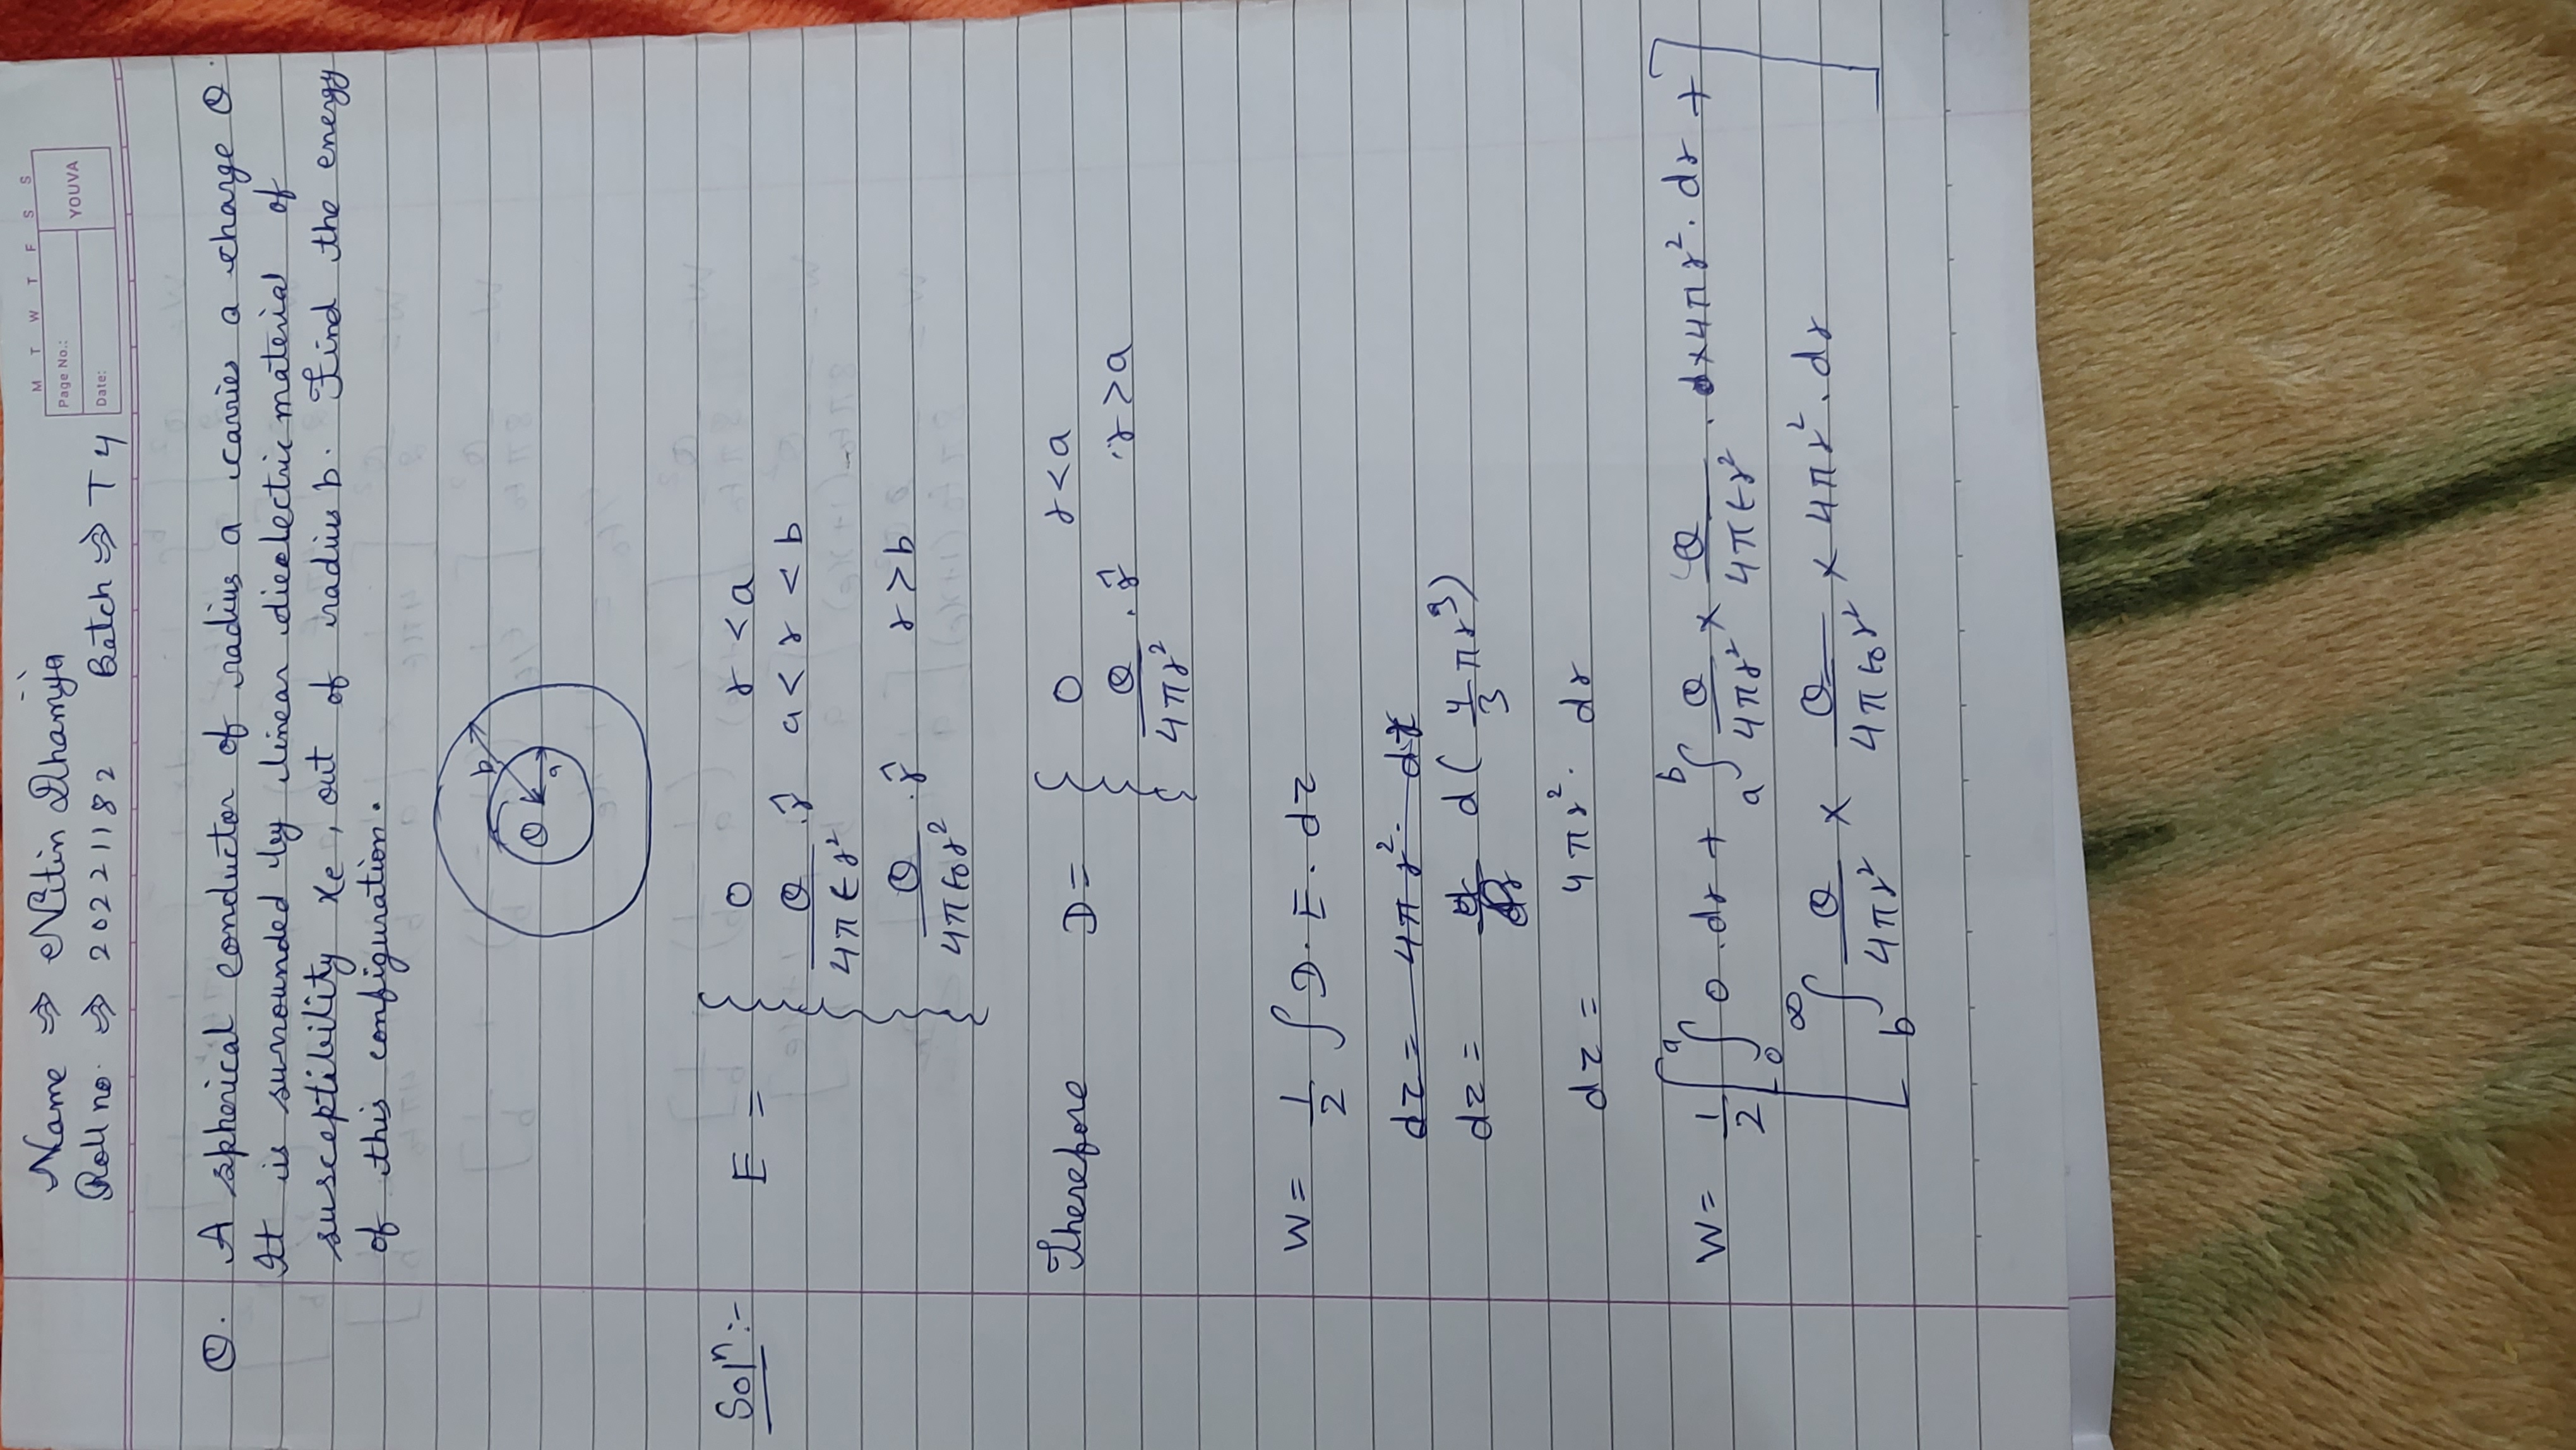 Name ⇒ Nitin Dhamija
M T W T F S S
Page No.:
YOUVA
Date:
Roll no. ⇒ 20221182 Batch ⇒ T4
Q. A spherical conductor of radius a carries a charge Q.
It is surrounded by linear dielectric material of
susceptibility χe, out of radius b. Find the energy
of this configuration.
b
Q
a
Solⁿ:-
E = { 0 r < a
Q/4πεr² . r̂ a < r < b
Q/4πε₀r² . r̂ r > b
Therefore D = { 0 r < a
Q/4πr² . r̂ r > a
W = 1/2 ∫ D. E. dτ
dτ = 4πr². dr
dτ = d(4/3 πr³)
dτ = 4πr². dr
W = 1/2 [ ∫₀ᵃ 0 . dr + ∫ₐᵇ Q/4πr² × Q/4πεr² . ×4πr². dr +
∫_b^∞ Q/4πr² × Q/4πε₀r² × 4πr². dr ]